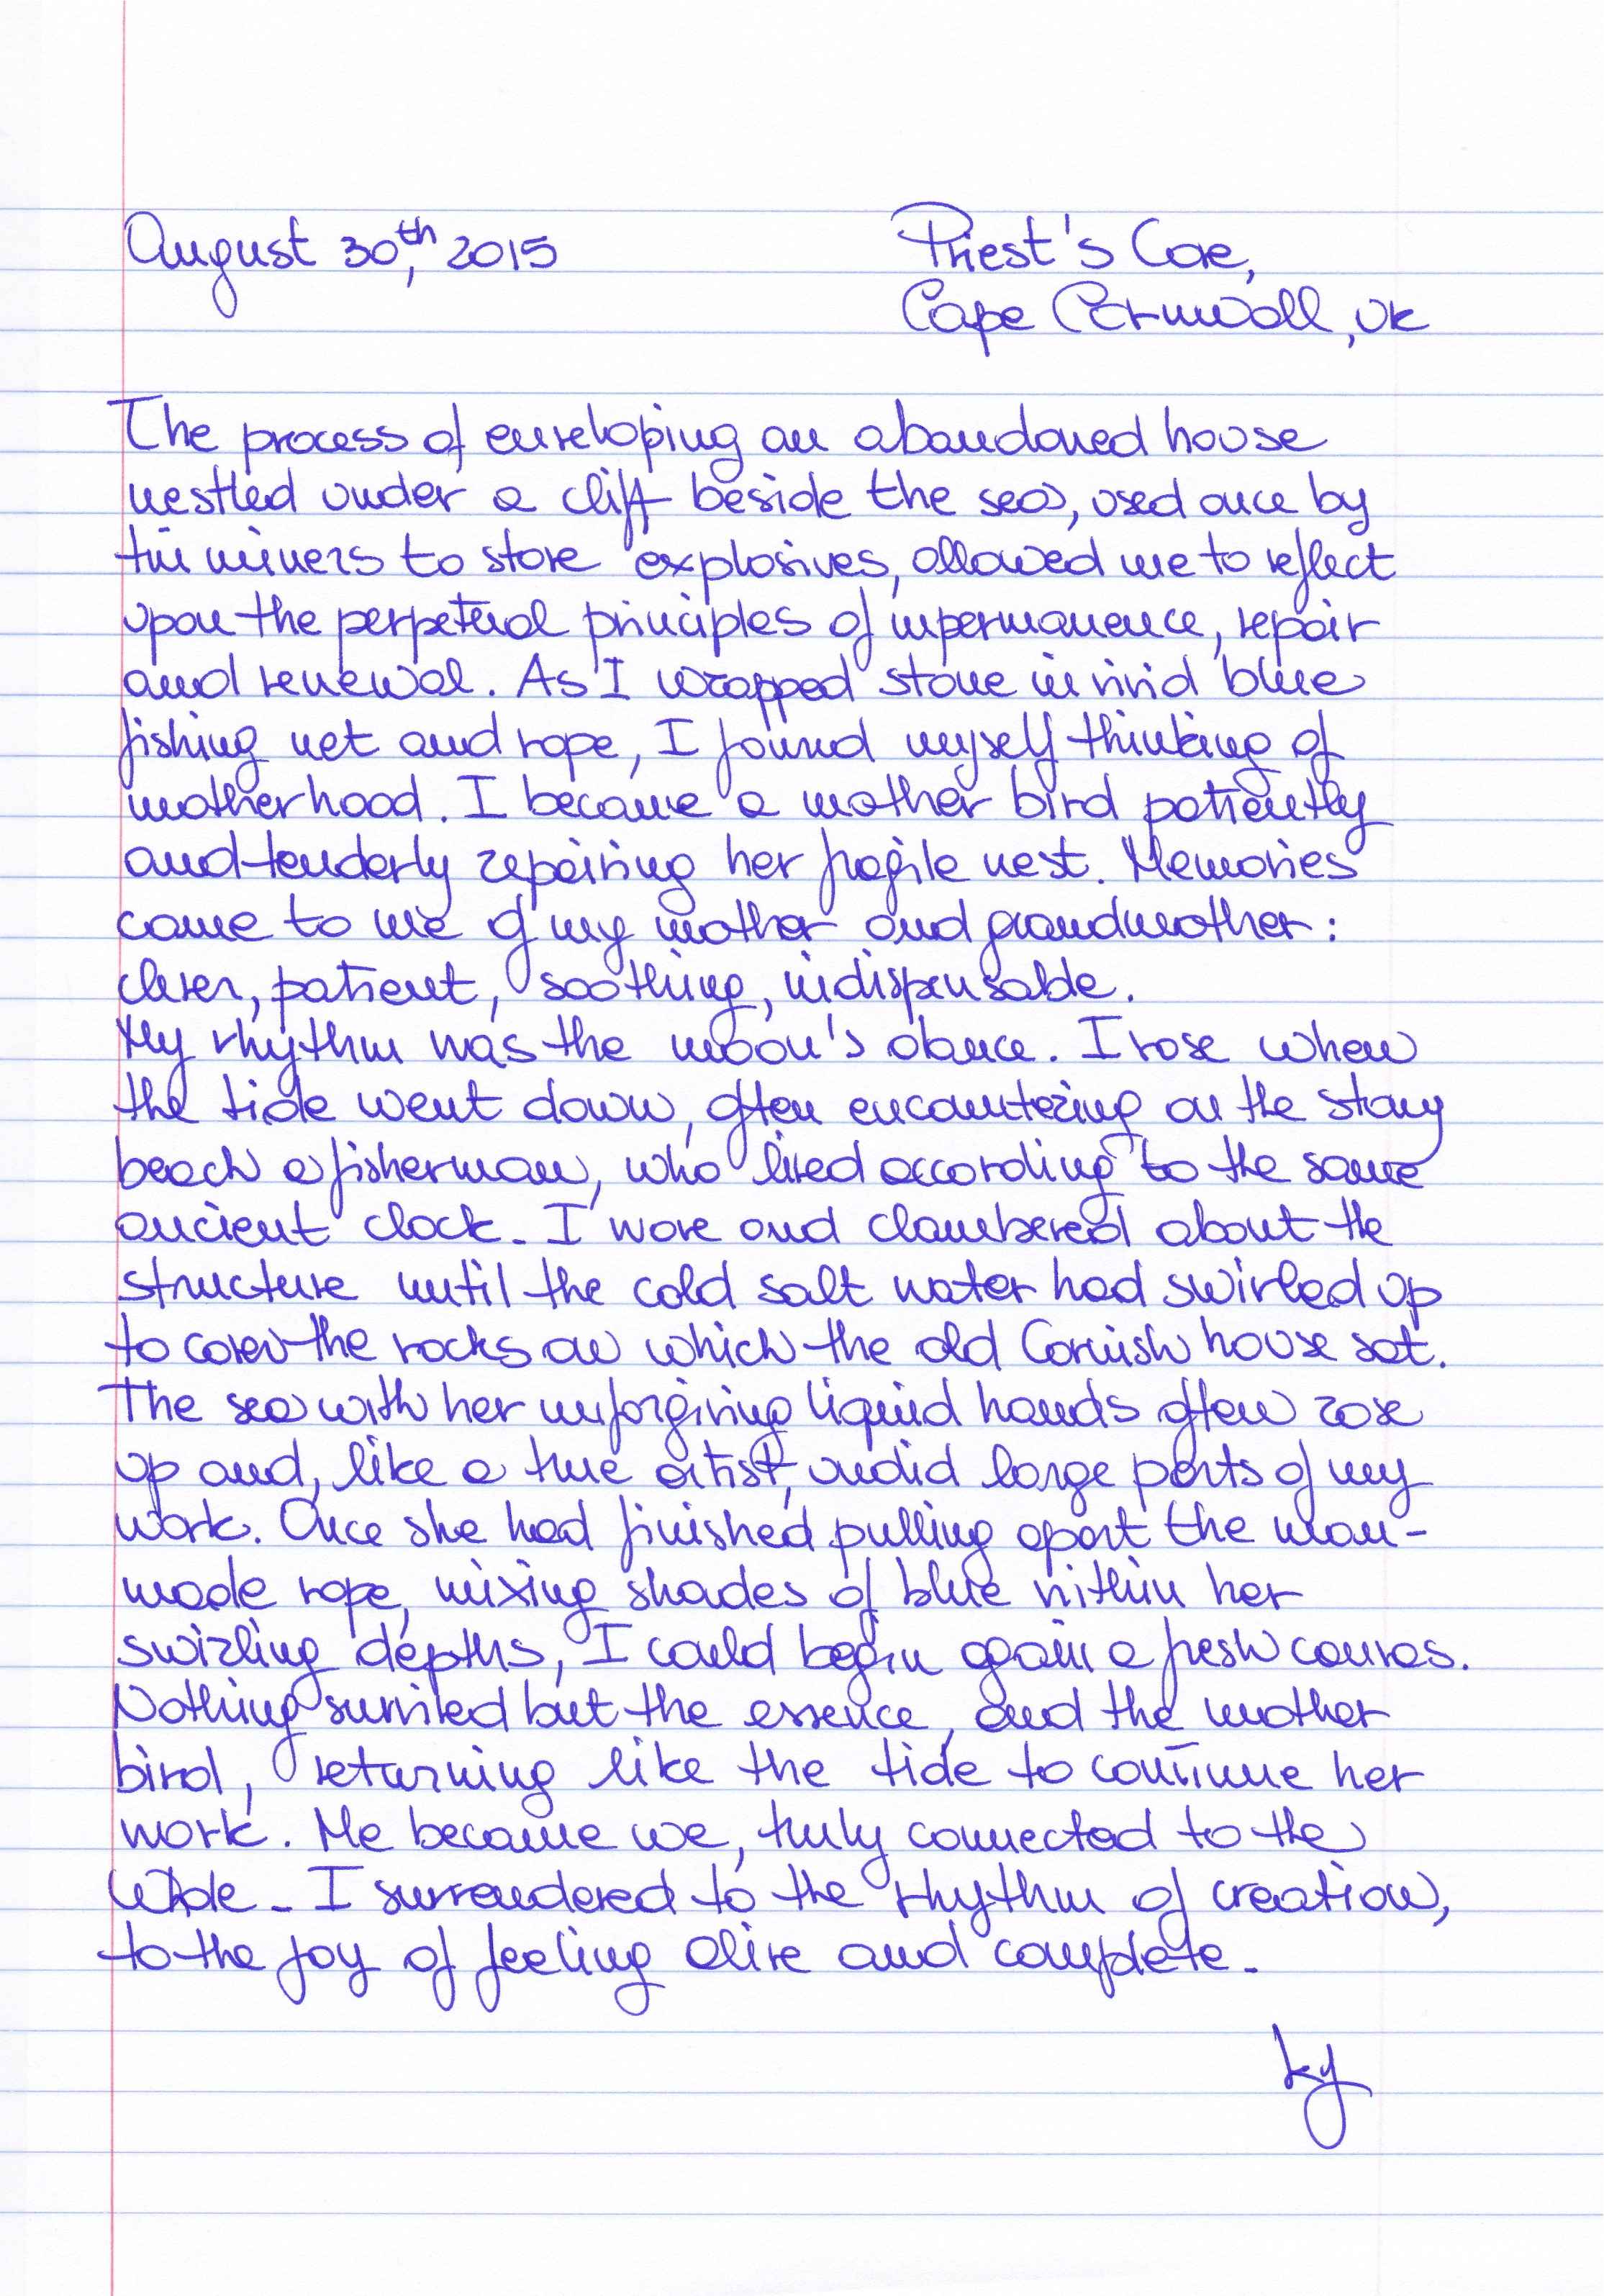 August 30,th 2015
Priest's Cove,
Cape Cornwall, UK
The process of enveloping an abandoned house
nestled under a cliff beside the sea, used once by
tin miners to store explosives, allowed me to reflect
upon the perpetual principles of impermanence, repair
and renewal. As I wrapped stone in vivid blue
fishing net and rope, I found myself thinking of
motherhood. I became a mother bird patiently
and tenderly repairing her fragile nest. Memories
came to me of my mother and grandmother:
clever, patient, soothing, indispensable.
My rhythm was the moon's dance. I rose when
the tide went down, often encountering on the stony
beach a fisherman, who lived according to the same
ancient clock. I wove and clambered about the
structure until the cold salt water had swirled up
to cover the rocks on which the old Cornish house sat.
The sea with her unforgiving liquid hands often rose
up and, like a true artist, undid large parts of my
work. Once she had finished pulling apart the man-
made rope, mixing shades of blue within her
swirling depths, I could begin again a fresh canvas.
Nothing survived but the essence, and the mother
bird, returning like the tide to continue her
work. Me became we, truly connected to the
Whole. I surrendered to the rhythm of creation,
to the joy of feeling alive and complete.
ky